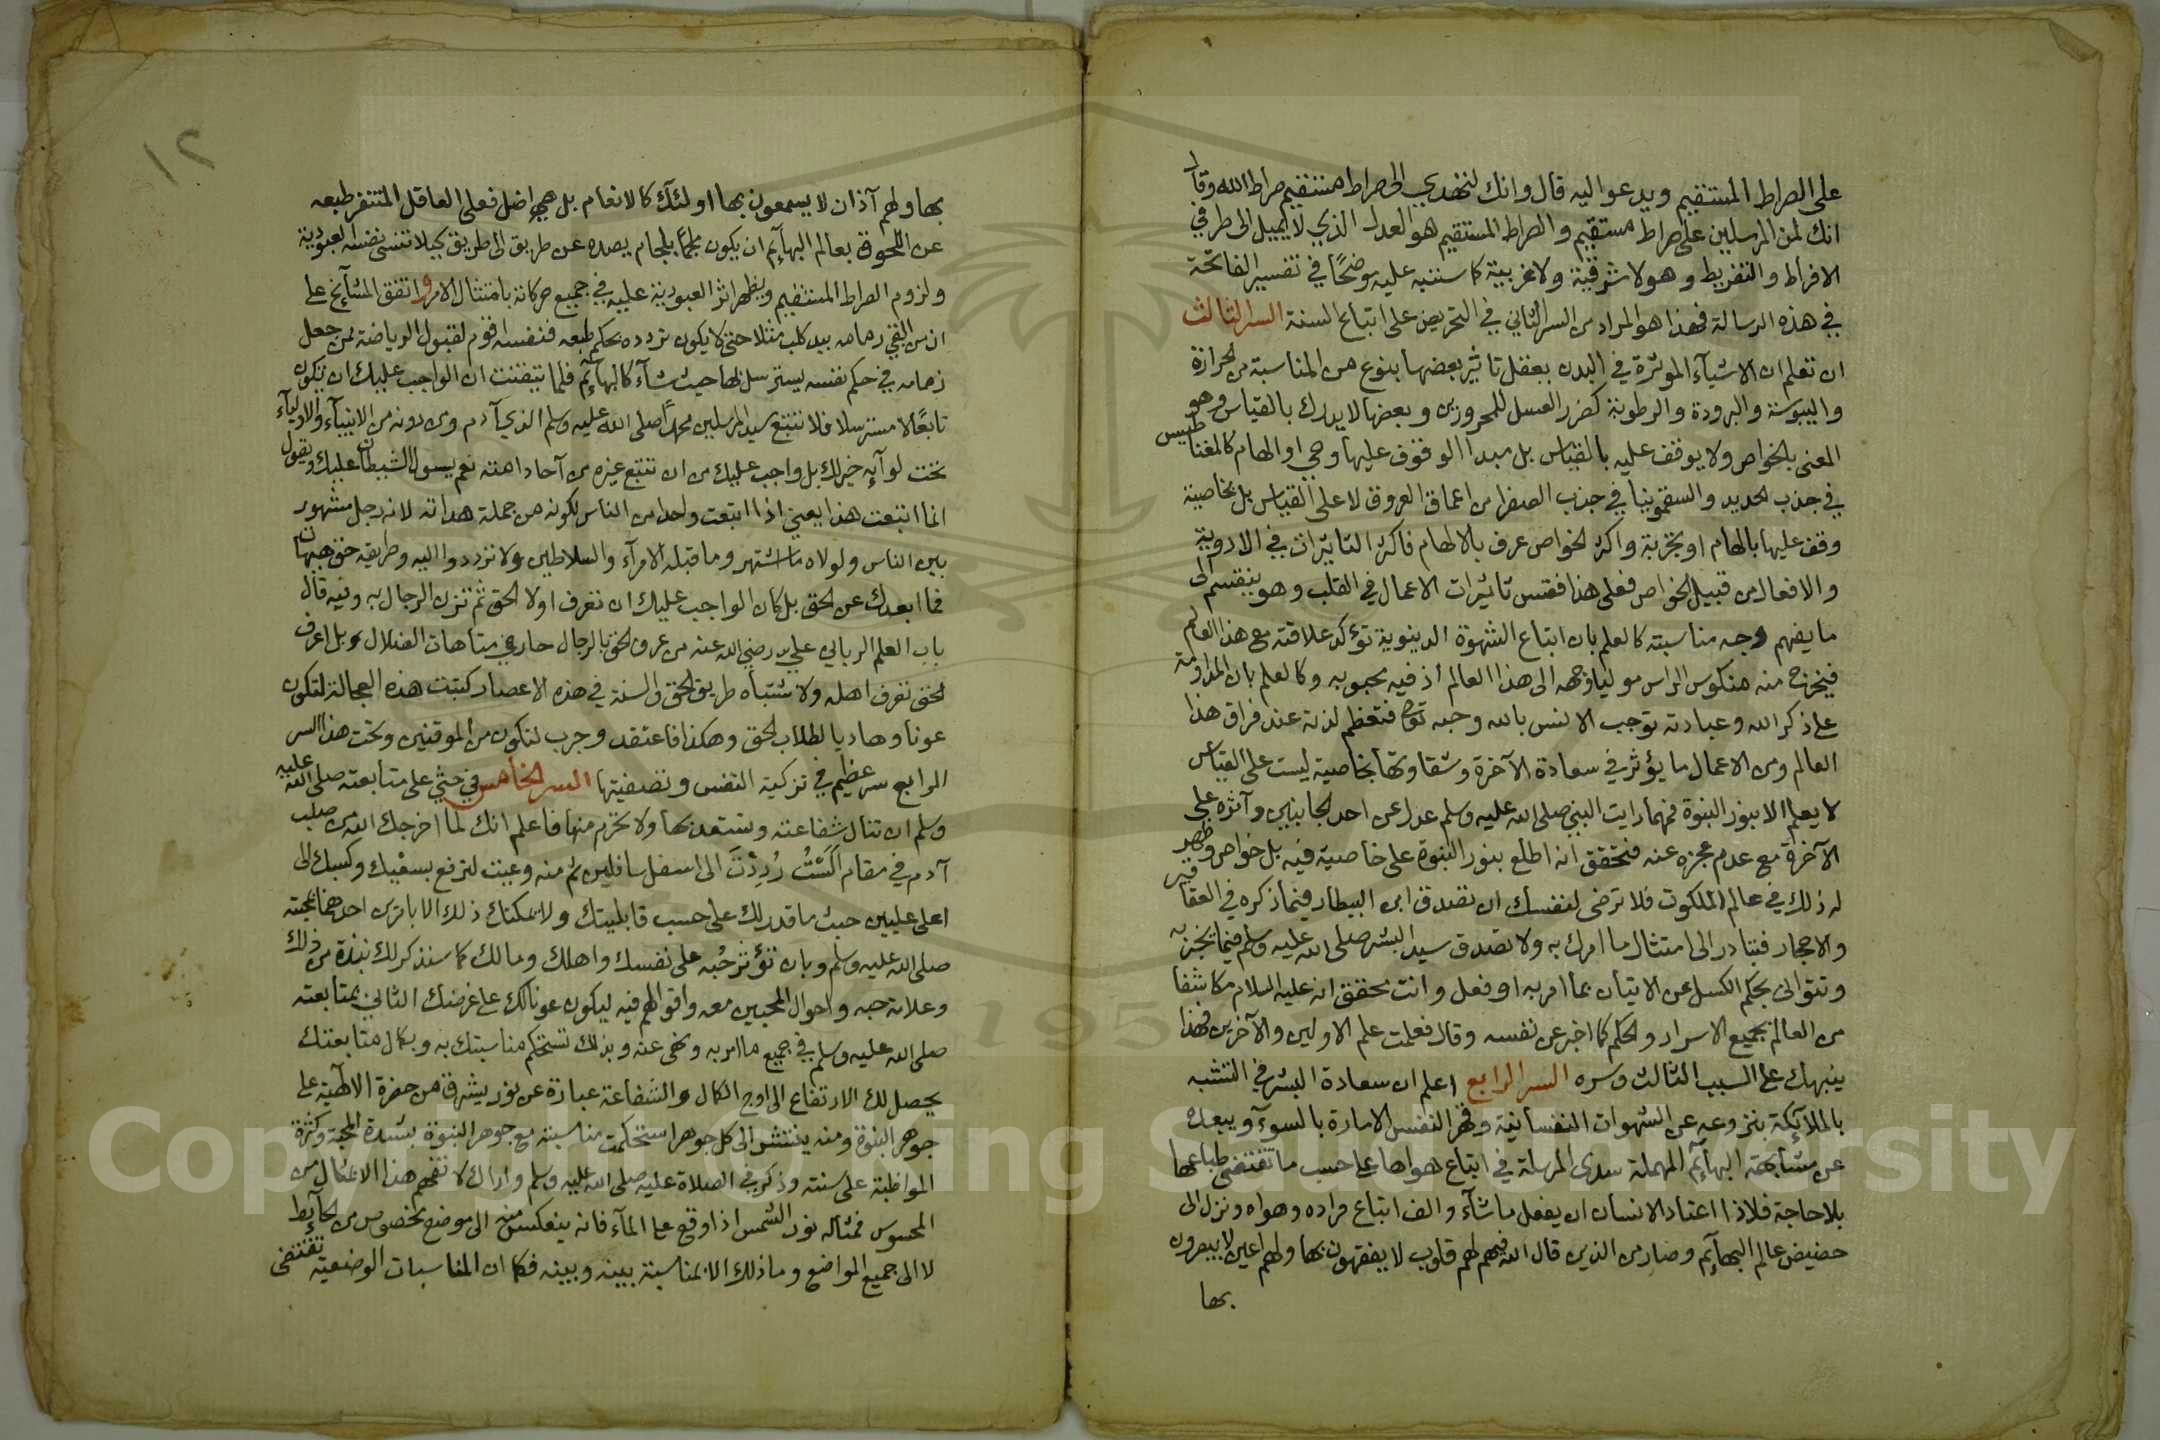 على الصراط المستقيم ويدعو اليه قال وانك لتهدي الى صراط مستقيم صراط الله وقال
انك لمن المرسلين على صراط مستقيم والصراط المستقيم هو العدل الذي لا يميل الى طرفي
الافراط والتفريط وهو لا شرقية ولا غربية كما سننبه عليه موضحًا في تفسير الفاتحة
في هذه الرسالة فهذا هو المراد من السر الثاني في التحريض على اتباع السنة السر الثالث
ان تعلم ان الاشيآء الموثرة في البدن بعقل تاثير بعضها بنوع من المناسبة من الحرارة
واليبوسة والبرودة والرطوبة كضرر العسل للمحرورين وبعضها لا يدرك بالقياس وهو
المعنى بالخواص ولا يوقف عليه بالقياس بل مبدا الوقوف عليها وحي او الهام كالمغناطيس
في جذب الحديد والسقمونيا في جذب الصفرا من اعماق العروق لا على القياس بل بخاصية
وقف عليها بالهام او بتجربة واكثر الخواص عرف بالالهام فاكثر التاثيرات في الادوية
والافعال من قبيل الخواص فعلى هذا فقس تاثيرات الاعمال في القلب وهو ينقسم الى
ما يفهم وجه مناسبته كالعلم بان اتباع الشهوة الدينوية تؤكد علاقته مع هذا العالم
فيخرج منه منكوس الراس موليا وجهه الى هذا العالم اذ فيه محبوبه وكالعلم بان المداومة
على ذكر الله وعبادته توجب الانس بالله وحبه فتعظم لذته عند فراق هذا
العالم ومن الاعمال ما يؤثر في سعادة الآخرة وشقاوتها بخاصية ليست على القياس
لا يعلم الا بنور النبوة فمهما رايت النبي صلى الله عليه وسلم عدل عن احد الجانبين وآثره على
الآخرة مع عدم عجزه عنه فتحقق انه اطلع بنور النبوة على خاصية فيه بل خواص وظهر
له ذلك في عالم الملكوت فلا ترضى لنفسك ان تصدق ابن البيطار فيما ذكره في العقاقير
والاحجار فتبادر الى امتثال ما امرك به ولا تصدق سيد البشر صلى الله عليه وسلم فيما يخبر به
وتتوانى بحكم الكسل عن الاتيان بما امر به او فعل وانت محقق انه عليه السلام مكاشفا
من العالم بجميع الاسرار والحكم كما اخبر عن نفسه وقال فعلمت علم الاولين والآخرين فهذا
ينبهك على السبب الثالث وسره السر الرابع اعلم ان سعادة البشر في التشبه
بالملآئكة بنزوعه عن الشهوات النفسانية وقهر النفس الامارة بالسوء ويبعده
عن مشابهة البهآئم المهملة سدى المرسلة في اتباع هواها على حسب ما تقتضى طباعها
بلا حاجة فلاذا اعتاد الانسان ان يفعل ما شآء والف اتباع مراده وهواه ونزل الى
حضيض عالم البهآئم وصار من الذين قال الله فيهم لهم قلوب لا يفقهون بها ولهم اعين لا يبصرون
بها
١٢
بها ولهم آذان لا يسمعون بها اولئك كالانعام بل هم اضل فعلى العاقل المتنفر طبعه
عن اللحوق بعالم البهآئم ان يكون ملجمًا بلجام يصده عن طريق الى طريق كيلا تنسى نفسه العبودية
ولزوم الصراط المستقيم ويظهر اثر العبودية عليه في جميع حركاته بامتثال الامر واتفق المشآيخ على
ان من القي زمامه بيد كلب مثلا حتى لا يكون تردده بحكم طبعه فنفسه اقوم لقبول الرياضة ممن جعل
زمامه في حكم نفسه يسترسل بها حيث شآء كالبهآئم فلما تيقنت ان الواجب عليك ان تكون
تابعًا لا مسترسلا فلان تتبع سيد المرسلين محمدًا صلى الله عليه وسلم الذي آدم ومن دونه من الانبيآء والاوليآء
تحت لوآيه خير لك بل واجب عليك من ان تتبع غيره من آحاد امته نعم يسول الشيطان عليك ويقول
انما اتبعت هذا يعني اذا اتبعت واحدا من الناس لكونه من جملة هداته لانه رجل مشهور
بين الناس ولولاه ما اشتهر وما قبله الامرآء والسلاطين ولا ترددوا اليه وطريقه حق
فما ابعدك عن الحق بل كان الواجب عليك ان تعرف اولا الحق ثم تزن الرجال به وفيه قال
باب العلم الرباني علي رضي الله عنه من عرف الحق بالرجال حار في متاهات الضلال بل اعرف
الحق تعرف اهله ولاشتباه طريق الحق والسنة في هذه الاعصار كتبت هذه العجالة لتكون
عونا وهاديا لطلاب الحق وهكذا فاعتقد وجرب لتكون من الموقنين وتحت هذا السر
الرابع سر عظيم في تزكية النفس وتصفيتها السر الخامس في حثي على متابعته صلى الله عليه
وسلم ان تنال شفاعته وتستعد بها ولا تحرم منها فاعلم انك لما اخرجك الله من صلب
آدم في مقام الَسْتُ رُدِدْتَ الى اسفل سافلين ثم منه وعيت لترفع بسعيك وكسبك الى
اعلى عليين حيث ما قدر لك على حسب قابليتك ولا يمكنك ذلك الا بامرين احدهما بمحبته
صلى الله عليه وسلم وبان تؤثر حُبه على نفسك واهلك ومالك كما سنذكر لك نبذة من ذلك
وعلامة حبه واحوال المحبين معه واقوالهم فيه ليكون عونا لك على غرضك الثاني بمتابعته
صلى الله عليه وسلم في جميع ما امر به ونهى عنه وبذلك تستحكم مناسبتك به وبكمال متابعتك
يحصل لك الارتفاع الى اوج الكمال والشفاعة عبارة عن نور يشرق من حضرة الالهية على
جوهر النبوة ومنه ينتشر الى كل جوهر استحكمت مناسبته مع جوهر النبوة بشدة المحبة وكثرة
المواظبة على سنته وذكر في الصلاة عليه صلى الله عليه وسلم واراك لا تفهم هذا الا بمثال من
المحسوس فمثاله نور الشمس اذا وقع على المآء فانه ينعكس منه الى موضع مخصوص من الحآيط
لا الى جميع المواضع وما ذلك الا لمناسبة بينه وبينه فكما ان المناسبات الوضعية تقتضى